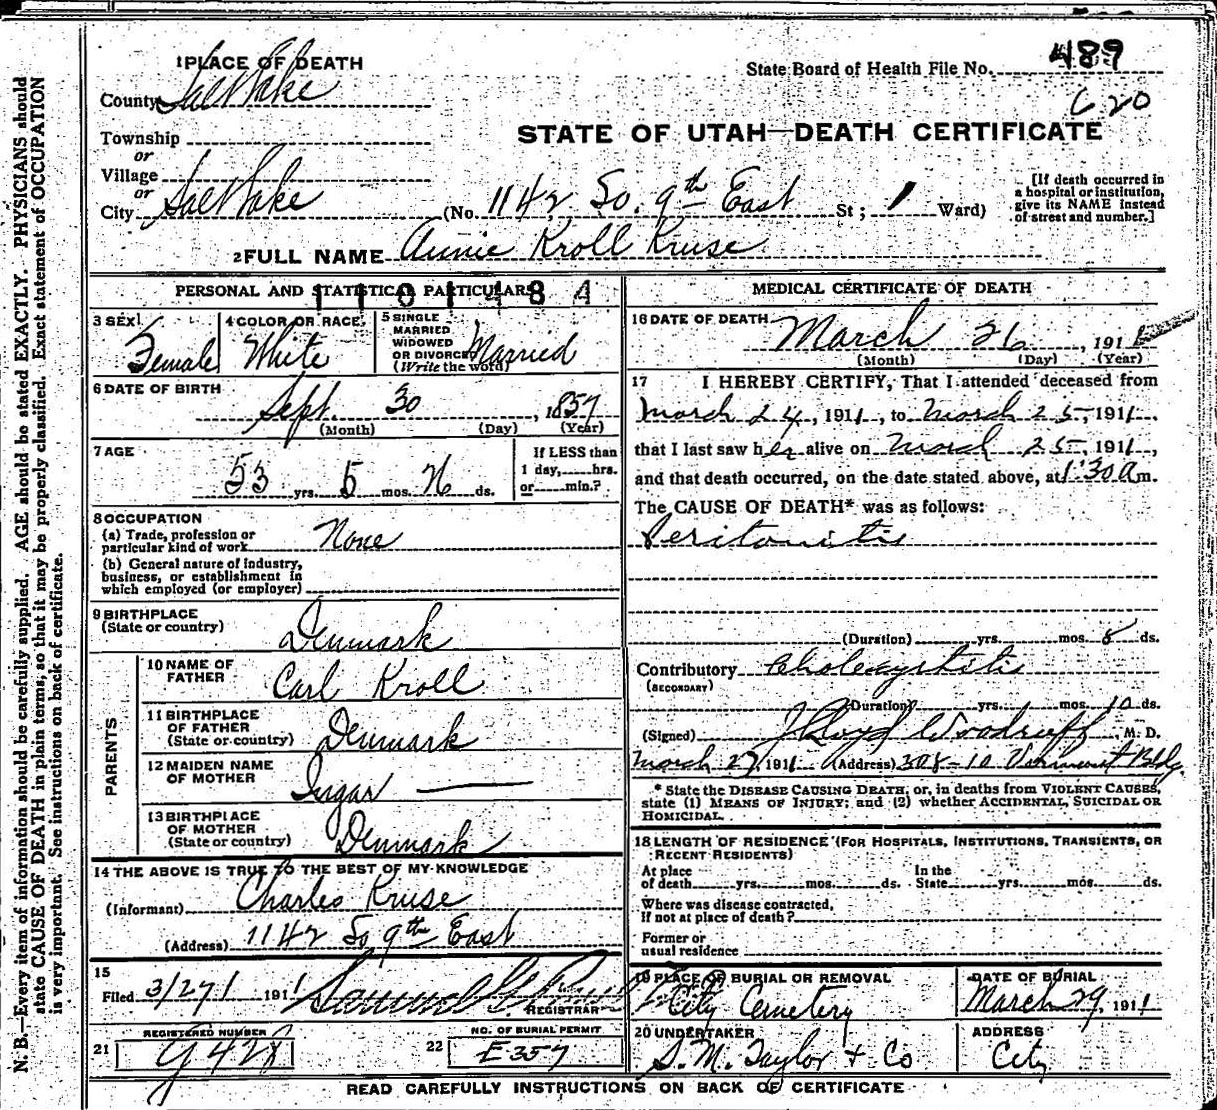 1 PLACE OF DEATH
County Salt Lake
Township
or
Village
or
City Salt Lake (No. 1142 So. 9th East St; 1 Ward)
[If death occurred in
a hospital or institution,
give its NAME instead
of street and number.]
State Board of Health File No. 489
C 20
STATE OF UTAH—DEATH CERTIFICATE
2 FULL NAME Annie Kroll Kruse
PERSONAL AND STATISTICAL PARTICULARS
1101484
3 SEX Female
4 COLOR OR RACE White
5 SINGLE
MARRIED
WIDOWED
OR DIVORCED
(Write the word) Married
6 DATE OF BIRTH
Sept. 30, 1857
(Month) (Day) (Year)
7 AGE
53 yrs. 5 mos. ds.
If LESS than
1 day, hrs.
or min.?
8 OCCUPATION
(a) Trade, profession or
particular kind of work None
(b) General nature of industry,
business, or establishment in
which employed (or employer)
9 BIRTHPLACE
(State or country) Denmark
PARENTS
10 NAME OF
FATHER Carl Kroll
11 BIRTHPLACE
OF FATHER
(State or country) Denmark
12 MAIDEN NAME
OF MOTHER Ingar —
13 BIRTHPLACE
OF MOTHER
(State or country) Denmark
14 THE ABOVE IS TRUE TO THE BEST OF MY KNOWLEDGE
(Informant) Charles Kruse
(Address) 1142 So 9th East
15
Filed 3/27/ 1911
REGISTRAR
REGISTERED NUMBER
21 G428
NO. OF BURIAL PERMIT
22 E357
MEDICAL CERTIFICATE OF DEATH
16 DATE OF DEATH
March 26, 1911
(Month) (Day) (Year)
17 I HEREBY CERTIFY, That I attended deceased from
March 24, 1911, to March 25, 1911,
that I last saw her alive on March 25, 1911,
and that death occurred, on the date stated above, at 1:30 a m.
The CAUSE OF DEATH* was as follows:
Peritonitis
(Duration) yrs. mos. 8 ds.
Contributory Cholecystitis
(SECONDARY)
(Duration) yrs. mos. 10 ds.
(Signed) J Lloyd Woodruff, M. D.
March 27, 1911 (Address) 308-10 Bldg.
* State the DISEASE CAUSING DEATH, or, in deaths from VIOLENT CAUSES,
state (1) MEANS OF INJURY; and (2) whether ACCIDENTAL, SUICIDAL OR
HOMICIDAL.
18 LENGTH OF RESIDENCE (FOR HOSPITALS, INSTITUTIONS, TRANSIENTS, OR
RECENT RESIDENTS)
At place
of death yrs. mos. ds.
In the
State yrs. mos. ds.
Where was disease contracted,
If not at place of death?
Former or
usual residence
19 PLACE OF BURIAL OR REMOVAL
City Cemetery
DATE OF BURIAL
March 29, 1911
20 UNDERTAKER
S. M. Taylor & Co
ADDRESS
City
READ CAREFULLY INSTRUCTIONS ON BACK OF CERTIFICATE
N. B.—Every item of information should be carefully supplied. AGE should be stated EXACTLY. PHYSICIANS should
state CAUSE OF DEATH in plain terms, so that it may be properly classified. Exact statement of OCCUPATION
is very important. See instructions on back of certificate.